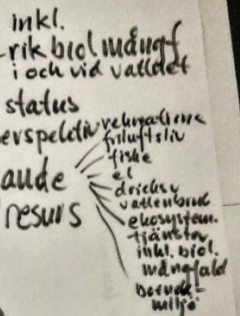 inkl.
rik biol mångf
i och vid vattdet
status
erspektiv rekreations
friluftsliv
fiske
ande
el
dricks-
vattenbruk
resurs
ekosystem.
tjänster
inkl. biol.
mångfald
boende-
miljö